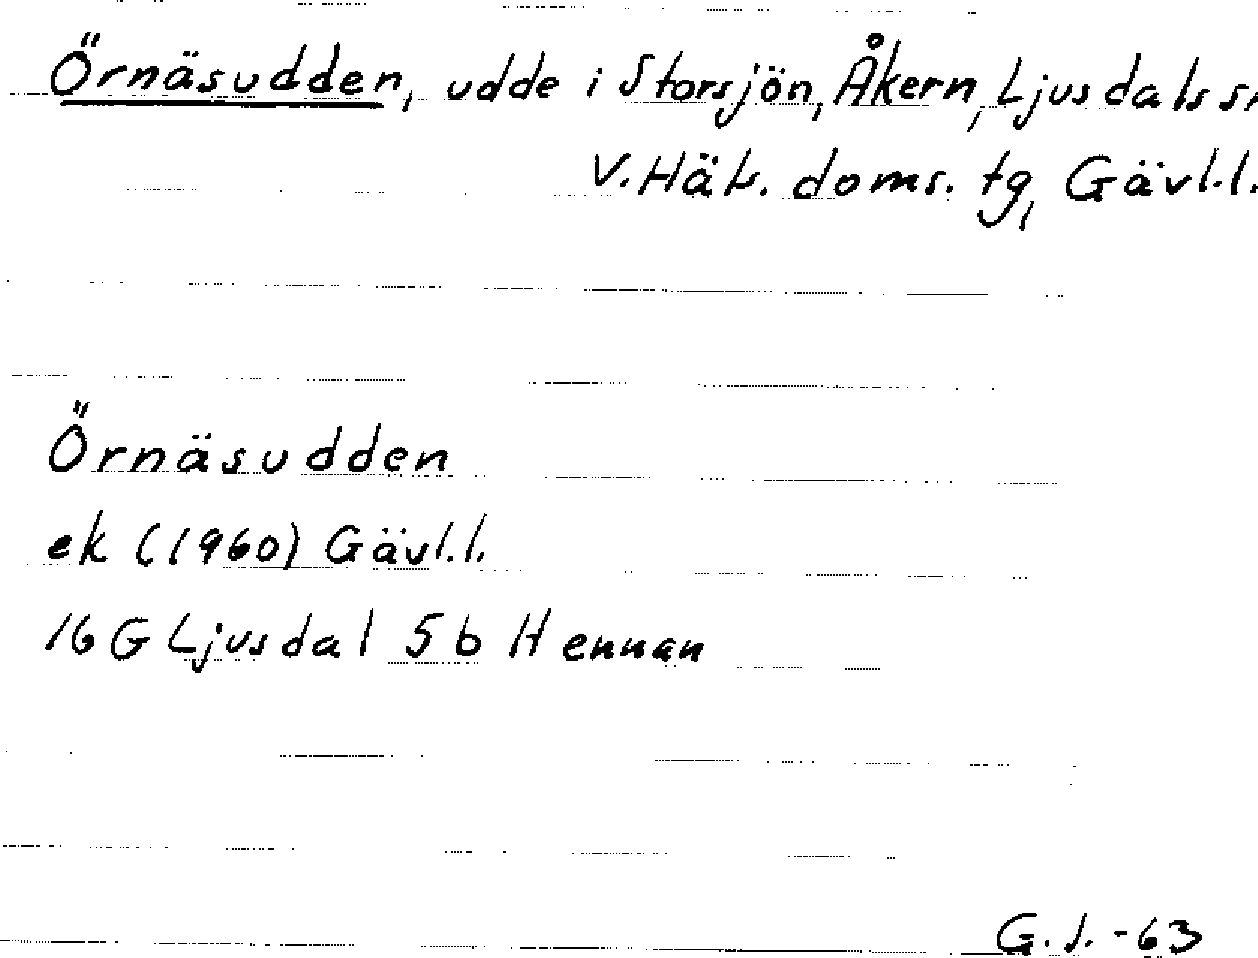 Örnäsudden, udde i Storsjön, Åkern, Ljusdals sn
V. Häls. doms. tg, Gävl.l.
Örnäsudden
ek (1960) Gävl.l.
16 G Ljusdal 5 b Hennan
G. J. -63